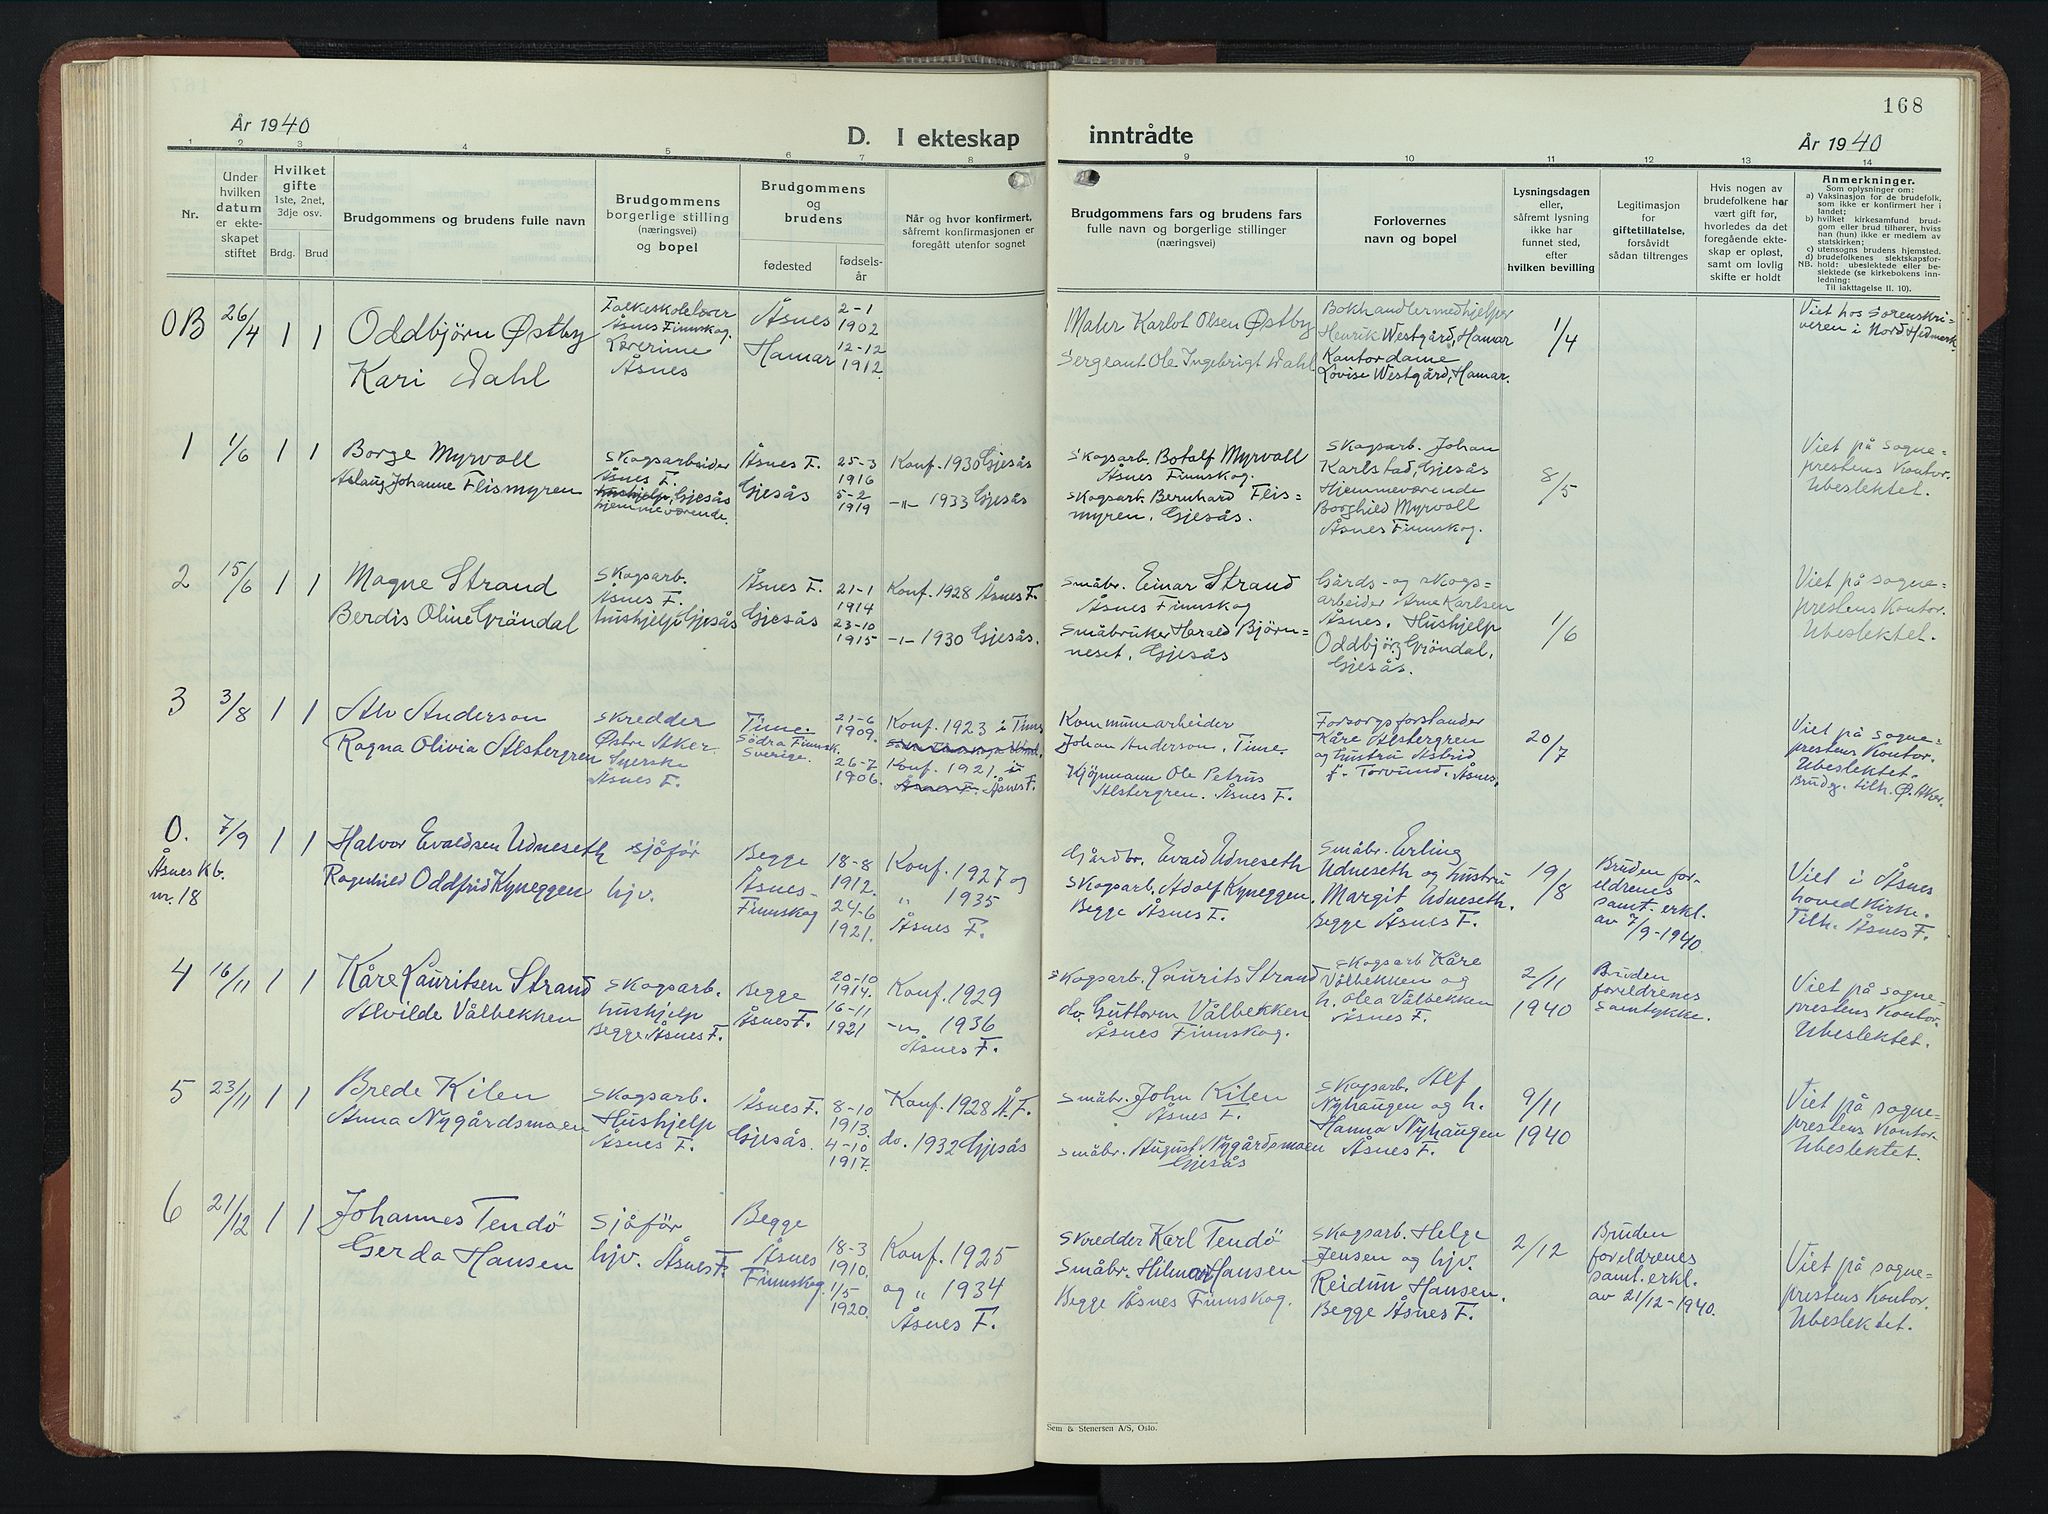 168
År 1940
D. I ekteskap
inntrådte
År 1940
1 2 3 4 5 6 7 8 9 10 11 12 13 14
Nr.
Under
hvilken
datum
er ekte-
skapet
stiftet
Hvilket
gifte
1ste, 2net,
3dje osv.
Brdg. Brud
Brudgommens og brudens fulle navn
Brudgommens
borgerlige stilling
(næringsvei)
og bopel
Brudgommens
og
brudens
fødested
fødsels-
år
Når og hvor konfirmert,
såfremt konfirmasjonen er
foregått utenfor sognet
Brudgommens fars og brudens fars
fulle navn og borgerlige stillinger
(næringsvei)
Forlovernes
navn og bopel
Lysningsdagen
eller,
såfremt lysning
ikke har
funnet sted,
efter
hvilken bevilling
Legitimasjon
for
giftetillatelse,
forsåvidt
sådan tiltrenges
Hvis nogen av
brudefolkene har
vært gift før,
hvorledes da det
foregående ekte-
skap er opløst,
samt om lovlig
skifte er holdt
Anmerkninger.
Som oplysninger om:
a) Vaksinasjon for de brudefolk,
som ikke er konfirmert her i
landet;
b) hvilket kirkesamfund brud-
gom eller brud tilhører, hviss
han (hun) ikke er medlem av
statskirken;
c) utensogns brudens hjemsted.
d) brudefolkenes slektskapsfor-
NB. hold: ubeslektede eller be-
slektede (se kirkebokens inn-
ledning:
Til iakttagelse II. 10).
OB
26/4
1 1
Oddbjörn Østby
Kari Dahl
Folkeskolelærer
Åsnes Finnskog.
Lærerinne
Åsnes
Åsnes
Hamar
2-1
1902
12-12
1912.
Maler Karlot Olsen Østby
Sergeant Ole Ingebrigt Dahl
Bokhandlermedhjelper
Henrik Westgård, Hamar
Kontordame
Lovise Westgård, Hamar.
1/4
Viet hos Sorenskri-
veren i Nord Hedmark.
1
1/6
1 1
Borge Myrvoll
Aslaug Johanne Flismyren
Skogsarbeider
Åsnes F.
Hushjelp, Gjesås
hjemmeværende.
Åsnes F.
Gjesås
25-3
1916
5-2
1919
Konf. 1930 Gjesås
-"- 1933 Gjesås
Skogsarb. Botolf Myrvoll
Åsnes Finnskog.
Skogsarb. Bernhard Flis=
myren, Gjesås.
Skogsarb. Johan
Karlstad, Gjesås
Hjemmeværende
Borghild Myrvoll
Åsnes Finnskog.
8/5
Viet på sogne=
prestens Kontor.
Ubeslektet.
2
15/6
1 1
Magne Strand
Berdis Oline Gröndal
Skogsarb.
Åsnes F.
hushjelp Gjesås
Åsnes F.
Gjesås
21-1
1914
23-10
1915
Konf. 1928 Åsnes F.
-"- 1930 Gjesås.
Småbr. Einar Strand
Åsnes Finnskog
Småbruker Harald Björn=
neset, Gjesås
Gårds- og skogs=
arbeider Arne Karlsen
Åsnes, Hushjelp
Oddbjörg Gröndal,
Gjesås.
1/6
Viet på sogne=
prestens Kontor.
Ubeslektet.
3
3/8
1 1
Alv Anderson
Ragna Olivia Alstergren
Skredder
Østre Aker.
Syerske
Åsnes F.
Time.
Södra Finnsk.
Sverige.
21-6
1909.
26-7
1906.
Konf. 1923 i Time
Konf. 1921. i
Åsnes F. Åsnes F.
Kommunearbeider
Johan Anderson, Time.
Kjöpmann Ole Petrus
Alstergren. Åsnes F.
Forsorgsforstander
Kåre Alstergren
og hustru Astrid
f. Torvund, Åsnes,
20/7
Viet på sogne=
prestens Kontor.
Ubeslektet.
Brudg. tilh. Ø. Aker.
O.
Åsnes Kb.
nr. 18
7/9
1 1
Halvor Evaldsen Udneseth
Ragnhild Oddfrid Kyneggen
sjåför
hjv.
Begge
Åsnes-
Finnskog
18-8
1912.
24-6
1921.
Konf. 1927 og
" 1935
Åsnes F.
Gårdbr. Evald Udneseth
Skogsarb. Adolf Kyneggen.
Begge Åsnes F.
Småbr. Erling
Udneseth og hustru
Margit Udneseth.
Begge Åsnes F.
19/8
Bruden for-
eldrenes
samt. erkl.
av 7/9-1940.
Viet i Åsnes
hovedkirke.
Tilh. Åsnes F.
4
16/11
1 1
Kåre Lauritsen Strand
Alvilde Vålbekken
Skogsarb.
hushjelp
Begge Åsnes F.
Begge
Åsnes F.
20-10
1914.
16-11
1921
Konf. 1929
-"- 1936
Åsnes F.
Skogsarb. Laurits Strand
do. Guttorm Vålbekken
Åsnes Finnskog.
Skogsarb Kåre
Vålbekken og
h. Olea Vålbekken
Åsnes F.
2/11
1940
Bruden
foreldrenes
samtykke.
Viet på sogne=
prestens Kontor.
Ubeslektet.
5
23/11
1 1
Brede Kilen
Anna Nygårdsmoen
Skogsarb.
Hushjelp
Åsnes F.
Åsnes F.
Gjesås.
8-10
1913.
4-10
1917.
Konf. 1928 Å.F.
do. 1932 Gjesås
Småbr. John Kilen
Åsnes F.
Småbr. August Nygårdsmoen
Gjesås
Skogsarb. Alf
Nyhaugen og h.
Hanna Nyhaugen
Åsnes F.
9/11
1940
Viet på sogne=
prestens Kontor.
Ubeslektet.
6
21/12
1 1
Johannes Tendö
Gerda Hansen
sjåför
hjv. Åsnes F.
Begge
Åsnes
Finnskog
18-3
1910.
1/5
1920.
Konf. 1925
og " 1934
Åsnes F.
Skredder Karl Tendö
Småbr. Hilmar Hansen
Begge Åsnes Finnskog.
Skogsarb. Helge
Jensen og hjv.
Reidun Hansen.
Begge Åsnes F.
2/12
Bruden
foreldrenes
samt. erkl.
av 21/12-1940.
Viet på sogne=
prestens Kontor.
Ubeslektet.
Sem & Stenersen A/S, Oslo.